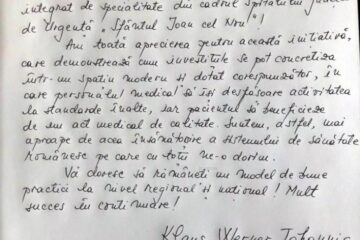 integrat de specialitate din cadrul Spitalului Județean
de Urgență „Sfântul Ioan cel Nou"!
Am toată aprecierea pentru această inițiativă,
care demonstrează cum investițiile se pot concretiza
într-un spațiu modern și dotat corespunzător, în
care personalul medical să își desfășoare activitatea
la standarde înalte, iar pacientul să beneficieze
de un act medical de calitate. Suntem, astfel, mai
aproape de acea însănătoșire a sistemului de sănătate
românesc pe care cu toții ne-o dorim.
Vă doresc să rămâneți un model de bune
practici la nivel regional și național! Mult
succes în continuare!
Klaus Werner Iohannis